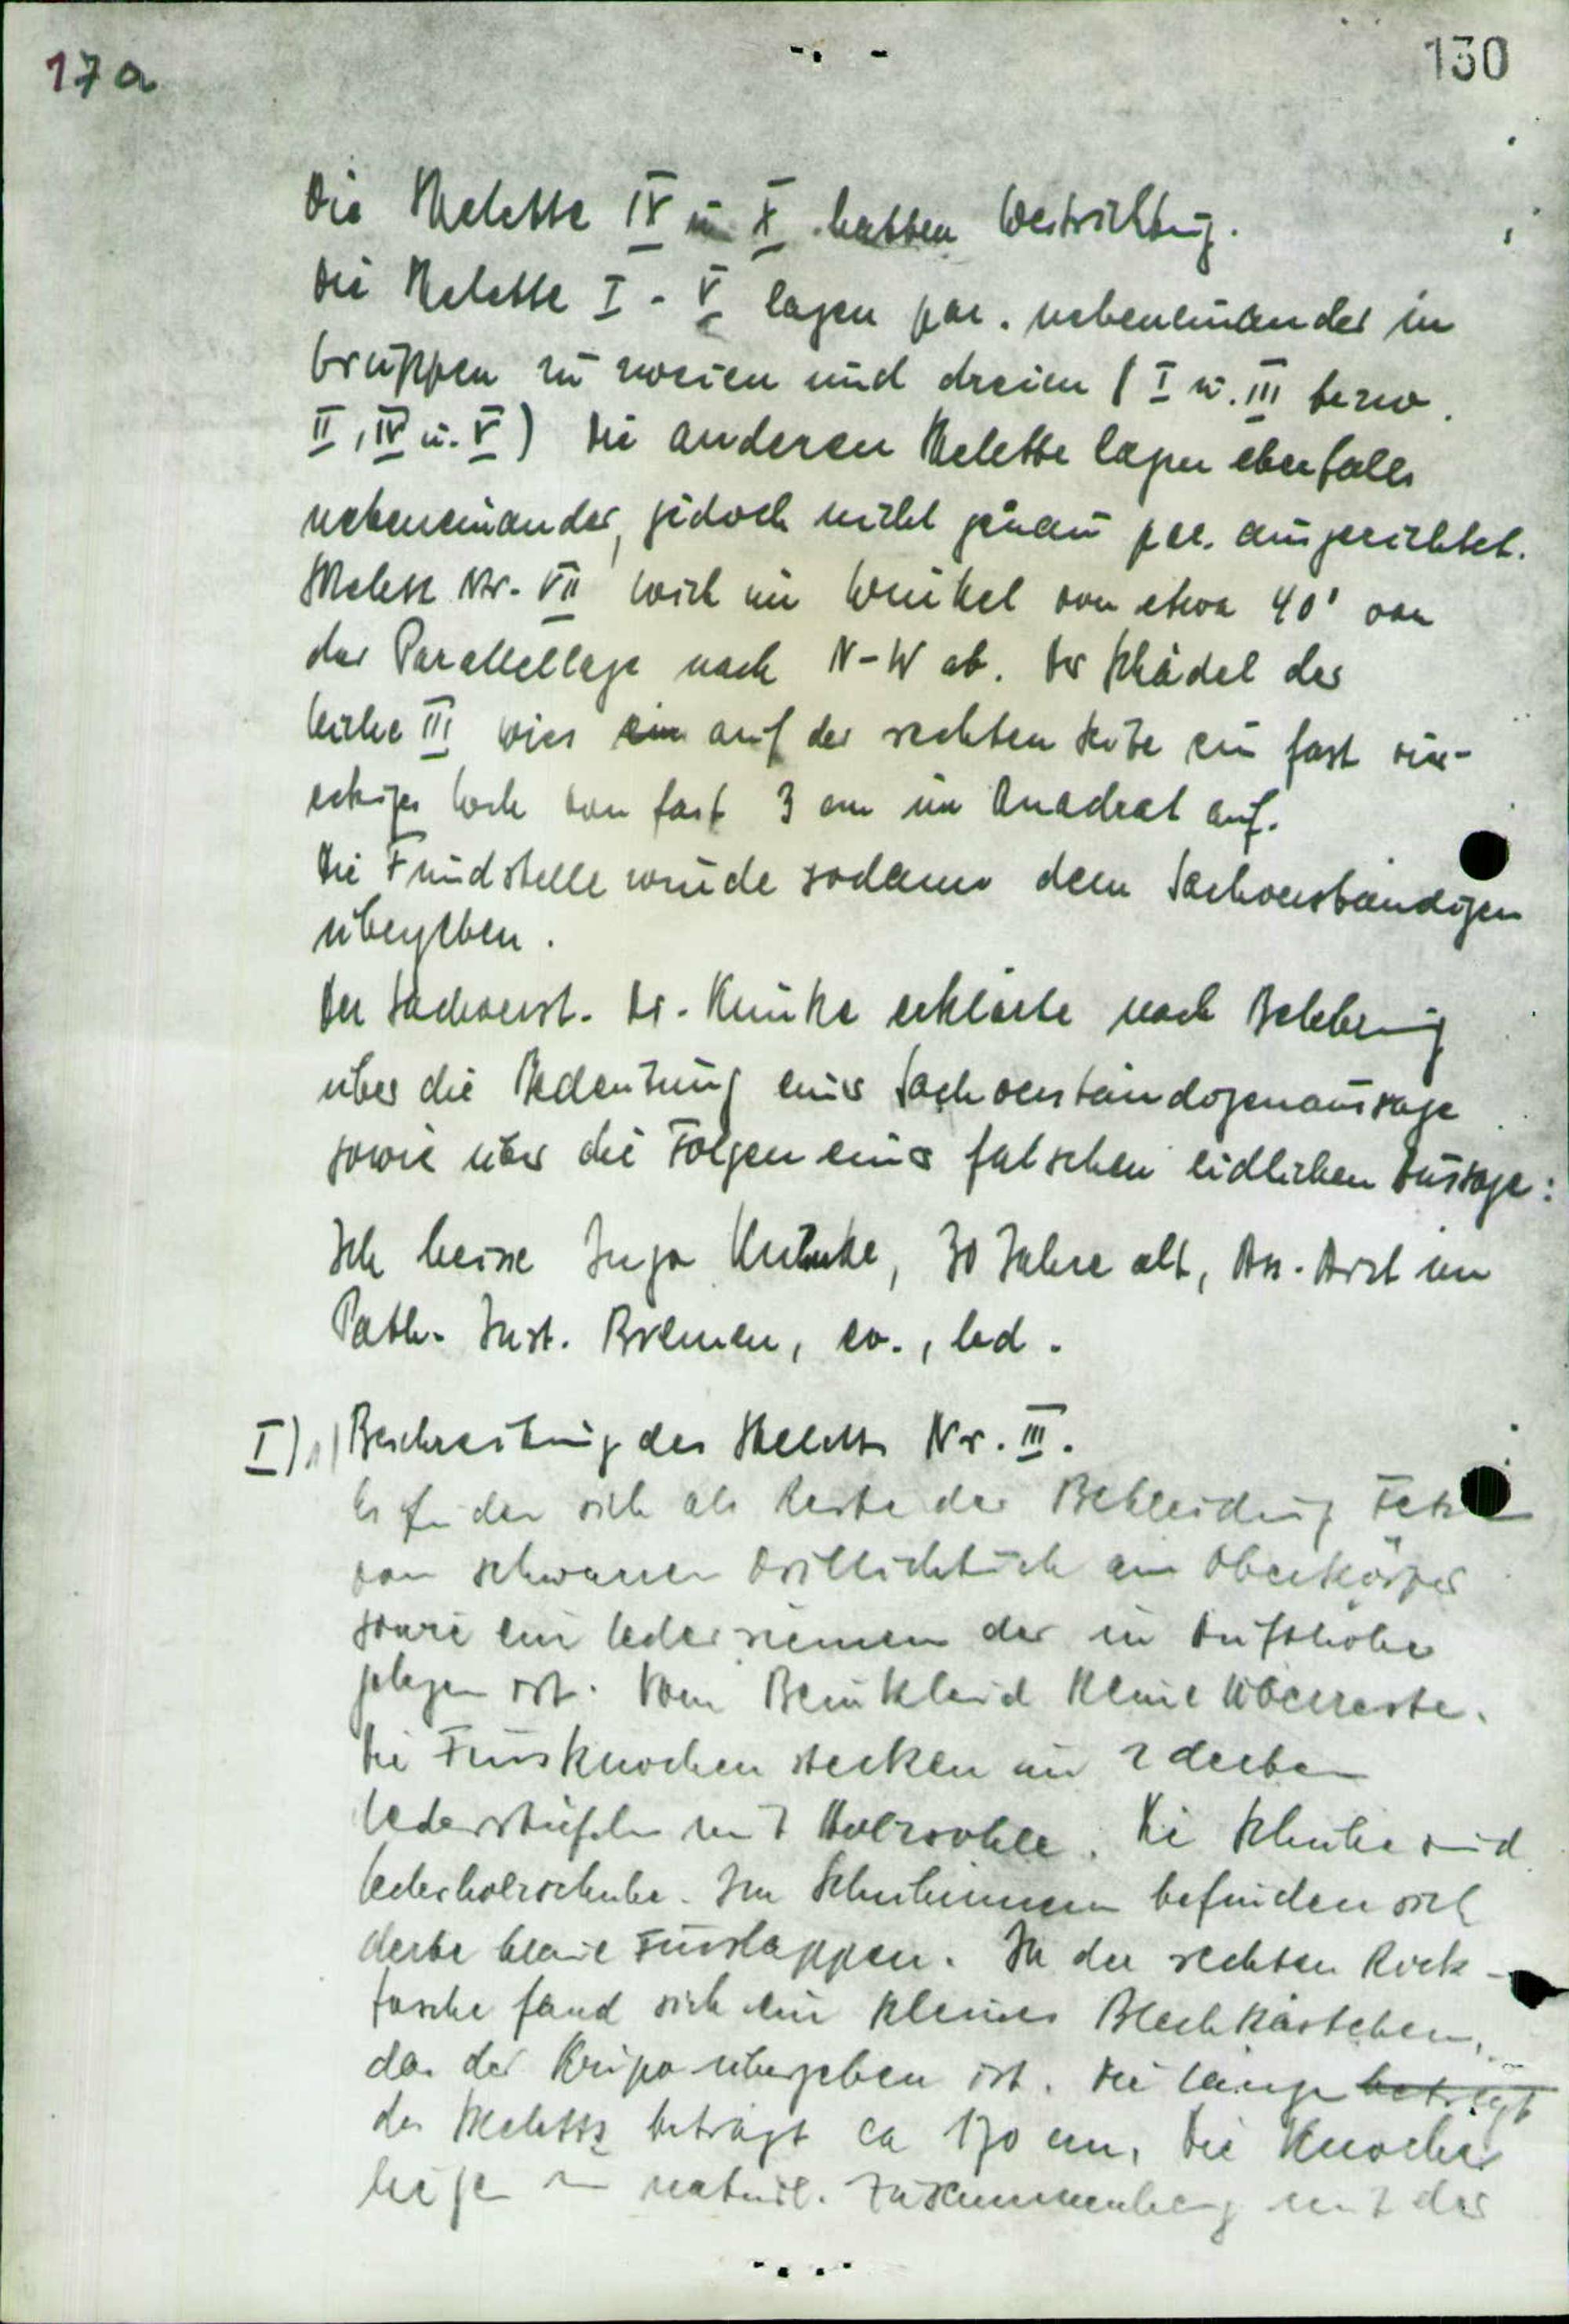 17a
130
Die Skelette IV u. X hatten Westrichtung.
Die Skelette I - V lagen par. nebeneinander in
Gruppen zu zweien und dreien (I u. III bezw.
II, IV u. V) Die anderen Skelette lagen ebenfalls
nebeneinander, jedoch nicht genau par. ausgerichtet.
Skelett Nr. VII wich im Winkel von etwa 40° von
der Parallellage nach N-W ab. Der Schädel der
Leiche III wies ein auf der rechten Seite ein fast vier-
eckiges Loch von fast 3 cm im Quadrat auf.
Die Fundstelle wurde sodann dem Sachverständigen
übergeben.
Der Sachverst. Dr. erklärte nach Belehrung
über die Bedeutung einer Sachverständigenaussage
sowie über die Folgen einer falschen eidlichen Aussage:
Ich heisse Inga, 30 Jahre alt, Ass. Arzt im
Path. Inst. Bremen, ev., led.
I) 1) Beschreibung des Skeletts Nr. III.
Es finden sich als Reste der Bekleidung Fetzen
von schwarzem Drillichtuch am Oberkörper
sowie ein Lederriemen der in Hüfthöhe
gelegen ist. Vom Beinkleid kleine Überreste.
Die Fussknochen stecken in 2 derben
Lederstiefeln mit Holzsohle. Die Schuhe sind
Lederholzschuhe. Im Schuhinnern befinden sich
derbe blaue Fusslappen. In der rechten Rock-
tasche fand sich ein kleines Blechkästchen,
das der Kripo übergeben ist. Die Länge beträgt
des Skeletts beträgt ca 170 cm. Die Knochen
liegen in natürl. Zusammenhang mit der